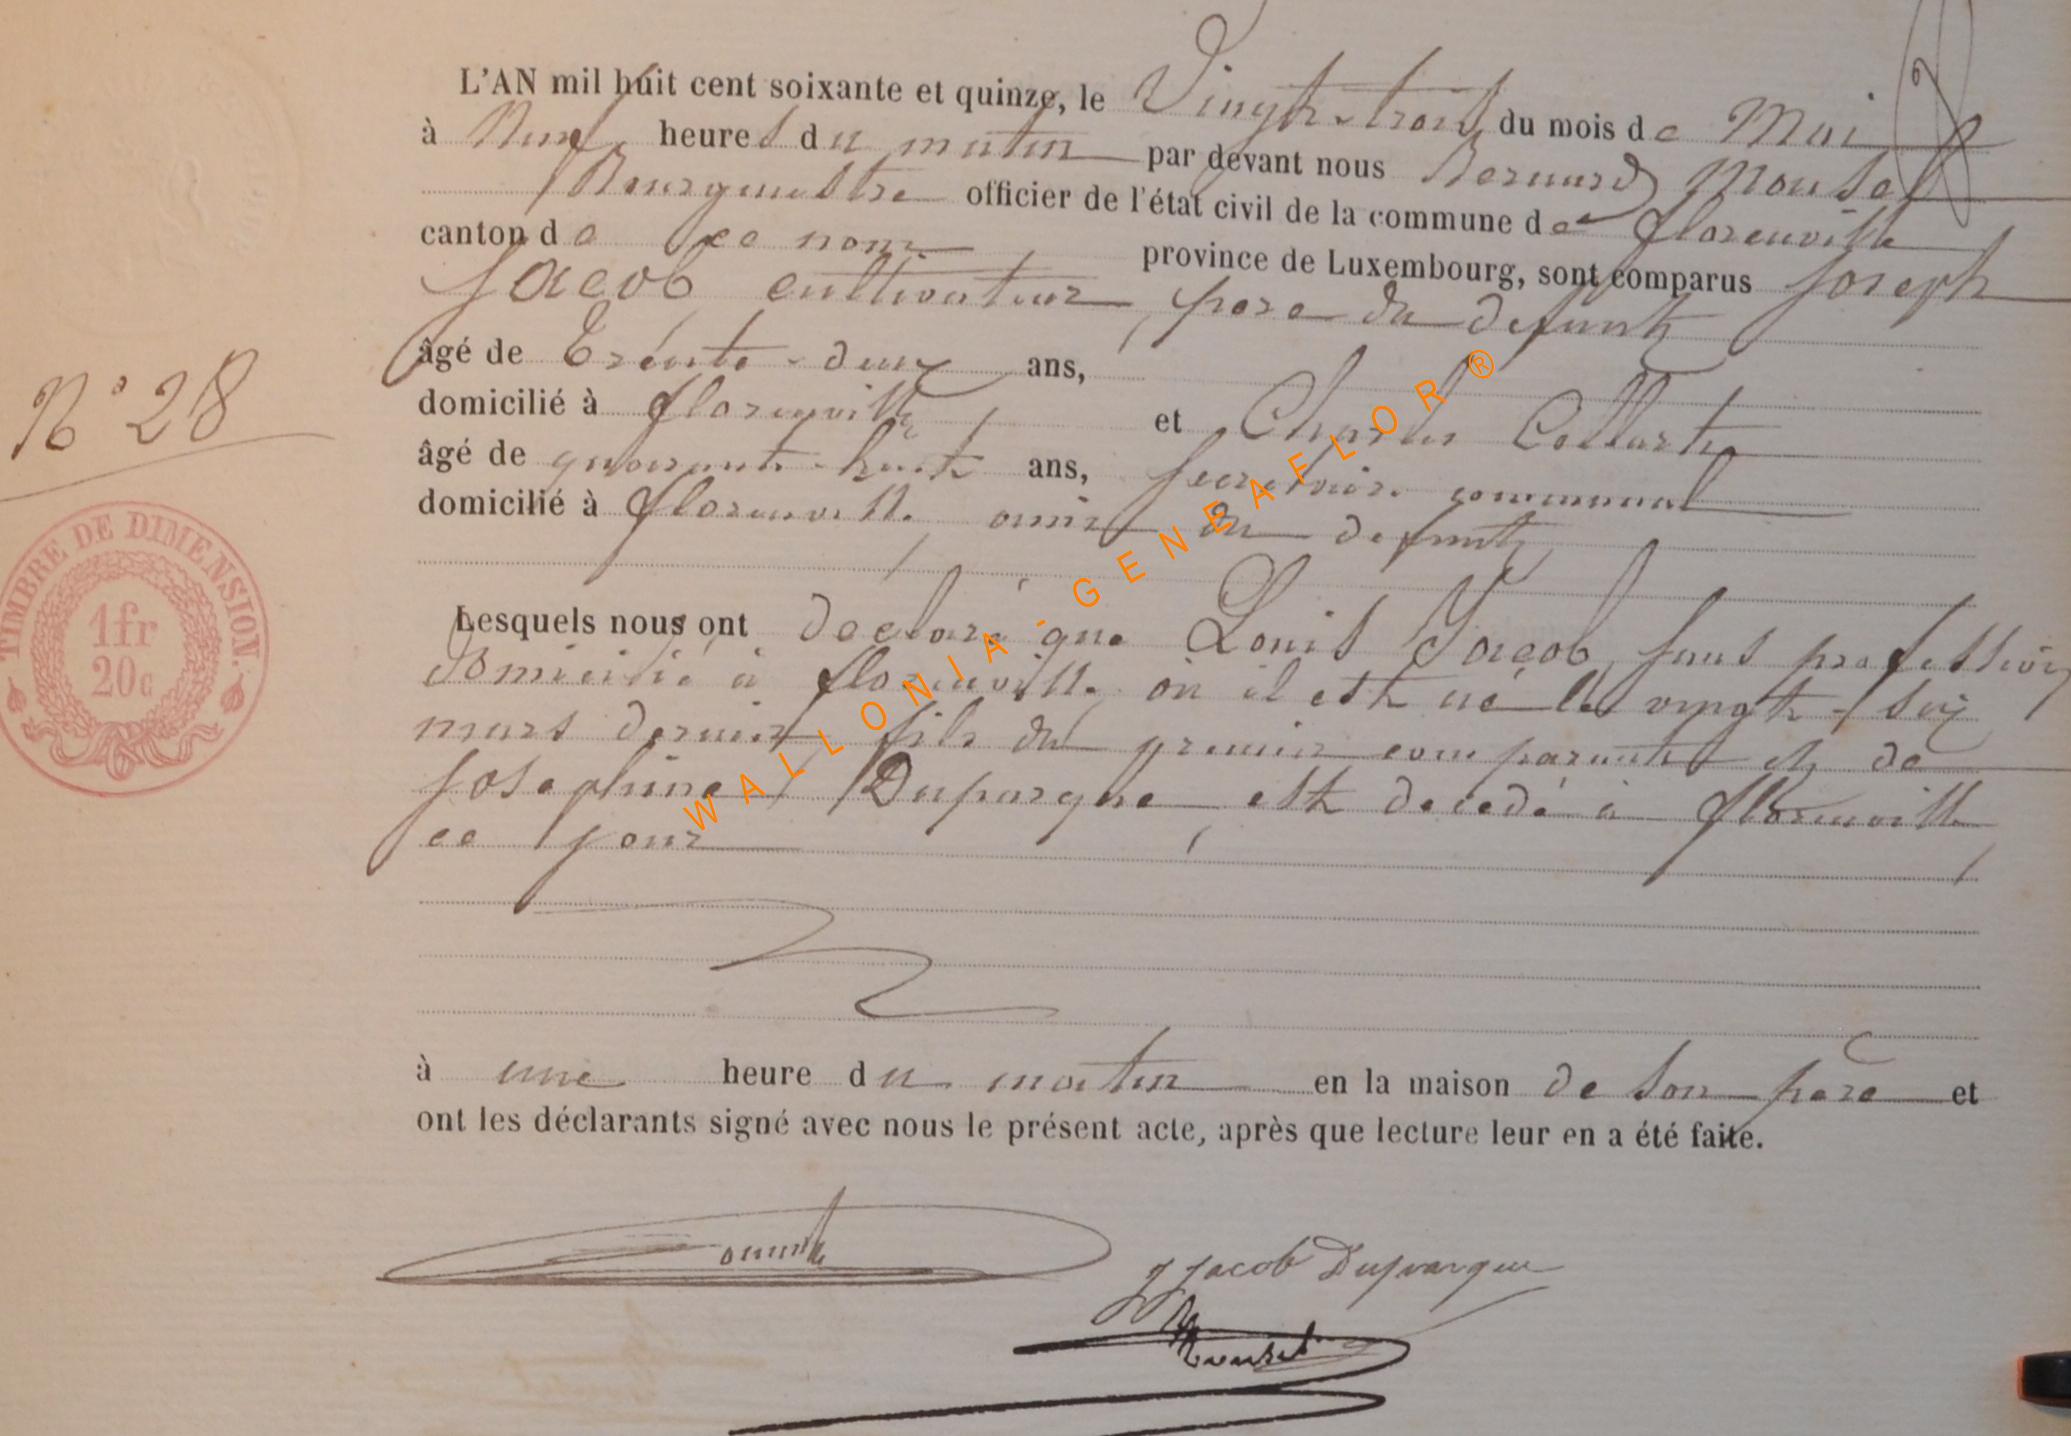 L'AN mil huit cent soixante et quinze, le Vingt-trois du mois de Mai
à Neuf heures du matin par devant nous Bernard Mousel
Bourgmestre officier de l'état civil de la commune de florenville
canton de ce nom province de Luxembourg, sont comparus Joseph
Jacob cultivateur, père du défunt
âgé de Trente-deux ans,
domicilié à florenville, et Charles Collart
âgé de quarante-huit ans, secrétaire communal
domicilié à florenville, ami du defunt,
Lesquels nous ont déclaré que Louis Jacob, sans profession
domicilié à florenville, où il est né le vingt-six
mars dernier fils du premier comparant et de
Josephine Duparque, est décedé à florenville,
ce jour
à une heure du matin en la maison de son père et
ont les déclarants signé avec nous le présent acte, après que lecture leur en a été faite.
J Jacob Duparque
Mousel
N° 28
TIMBRE DE DIMENSION.
1fr
20c
WALLONIA - GENEAFLOR ®